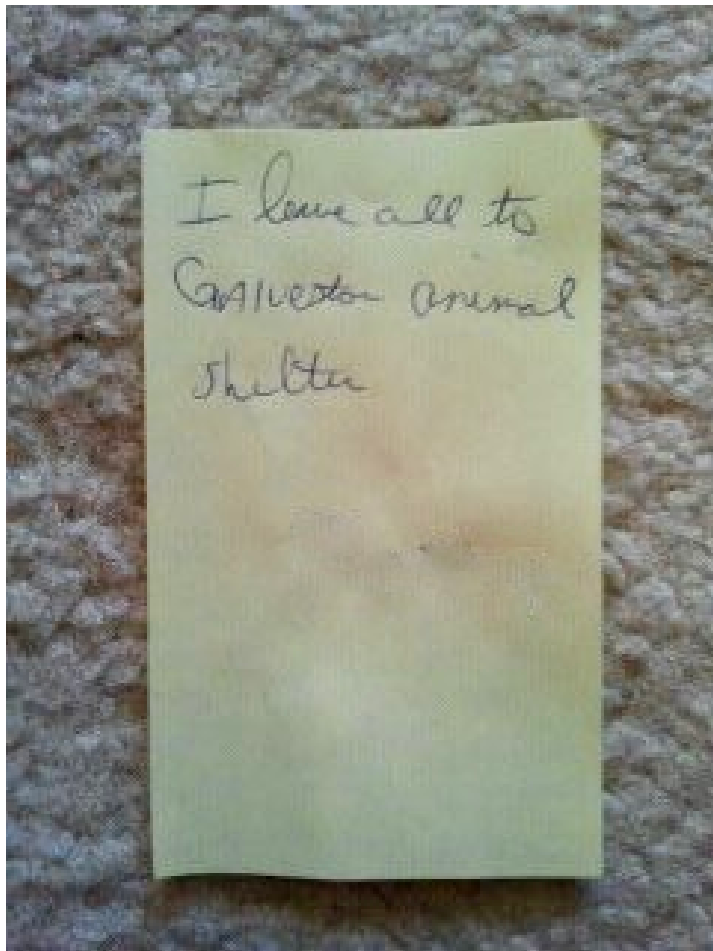 I leave all to
GAlveston animal
shelter